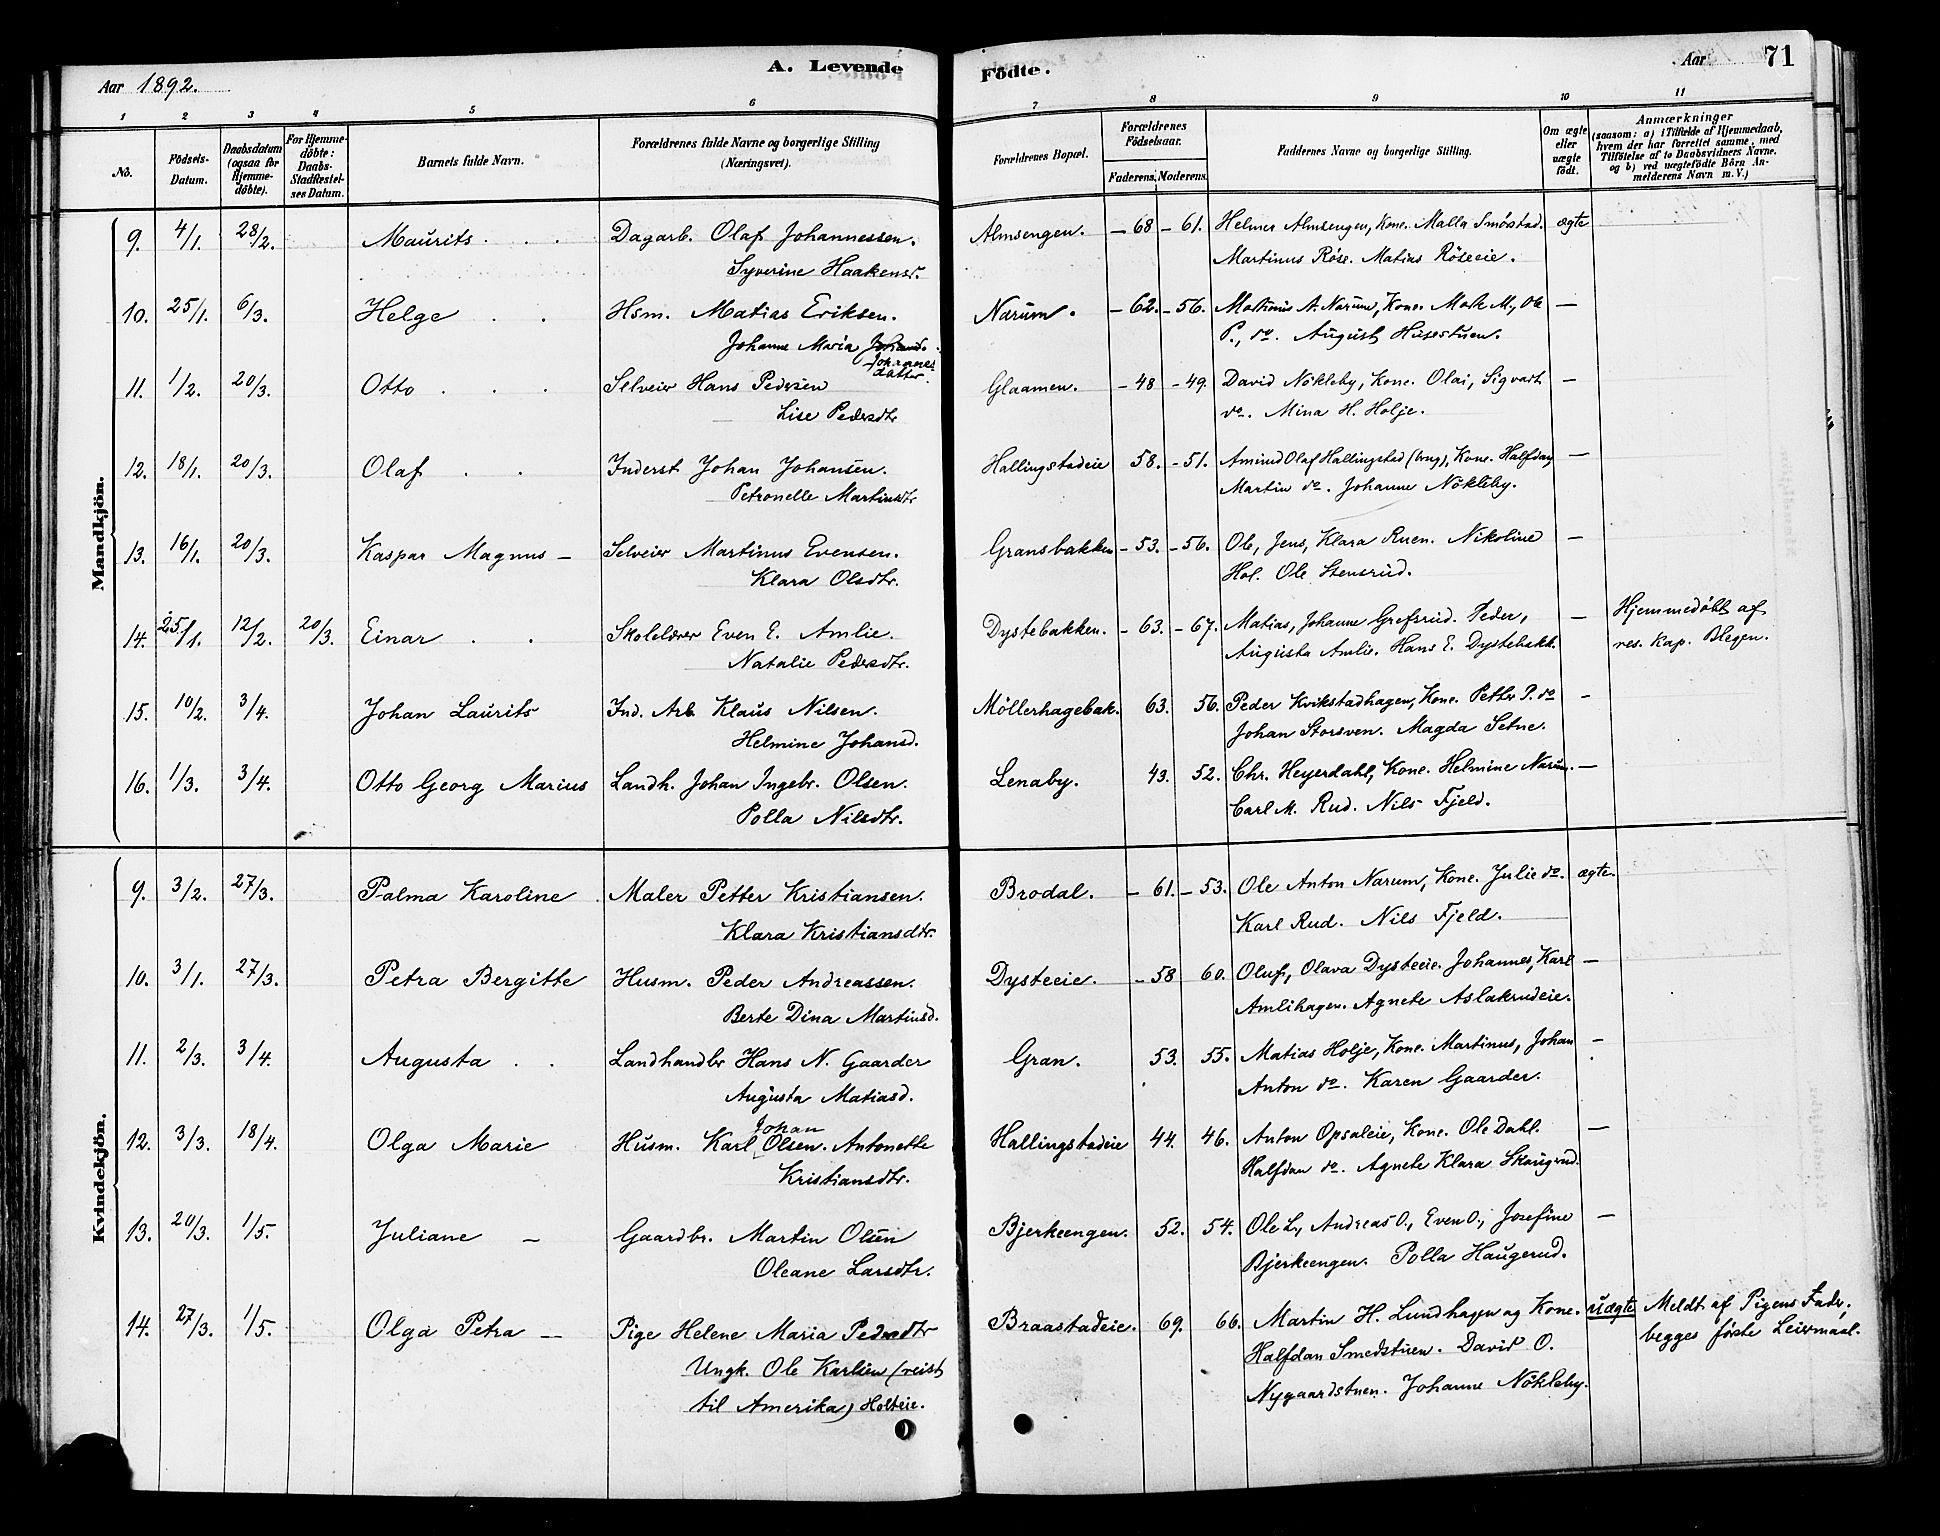 Aar 1892.
A. Levende
Födte.
Aar
71
1 2 3 4 5 6 7 8 9 10 11
No.
Födsels-Datum.
Daabsdatum (ogsaa for Hjemme-döbte).
For Hjemme-döbte: Daabs-Stadfæstel-ses Datum.
Barnets fulde Navn.
Forældrenes fulde Navne og borgerlige Stilling (Næringsvei).
Forældrenes Bopæl.
Forældrenes Födselsaar.
Faderens. Moderens.
Faddernes Navne og borgerlige Stilling.
Om ægte eller uægte födt.
Anmærkninger
(saasom: a) i Tilfælde af Hjemmedaab, hvem der har forrettet samme, med Tilföielse af to Daabsvidners Navne, og b) ved uægtefödte Börn An-melderens Navn m. V.)
Mandkjön.
9. 4/1. 28/2. Maurits Dagarb. Olaf Johannessen. Almsengen. – 68 – 61. Helmer Almsengen, Kone. Malla Smöstad. ægte
Syverine Haakensr. Martinus Röse. Matias Röseeie.
10. 25/1. 6/3. Helge Hsm. Matias Eriksen. Narum. – 62. – 56. Mathius A. Narum, Kone. Math M., Ole –
Johanne Maria Johannesdatter. P., do. August Husestuen.
11. 1/2. 20/3. Otto Selveier Hans Pedersen Glaamen. – 48 – 49. David Nökleby, Kone. Olai, Sigvart –
Lise Pedersdtr do. Mina H. Holje.
12. 18/1. 20/3. Olaf Inderst Johan Johansen. Hallingstadeie 58. – 51. Amund Olaf Hallingstad (ung), Kone. Halfdan –
Petronelle Martinsdtr Martin do. Johanne Nökleby.
13. 16/1. 20/3. Kaspar Magnus – Selveier Martinus Evensen. Gransbakken – 53. – 56. Ole, Jens, Klara Ruen. Nikoline –
Klara Olsdtr. Hol. Ole Stensrud.
14. 25/1. 12/2. 20/3. Einar Skolelærer Even E. Amlie. Dystebakken. – 63. – 67. Matias, Johanne Grefsrud. Peder, – Hjemmedöbt af
Natalie Pedersdtr. Augusta Amlie. Hans E. Dystebakk. res. Kap. Blegen.
15. 10/2. 3/4. Johan Laurits Ind. Arb. Klaus Nilsen. Möllerhagebak. 63. 56. Peder Kvikstadhagen, Kone. Petter P. do –
Helmine Johansd. Johan Storsven. Magda Setne.
16. 1/3. 3/4. Otto Georg Marius Landh. Johan Ingebr. Olsen. Lenaby. 43. 52. Chr. Heyerdahl, Kone. Helmine Narum. –
Polla Nilsdtr. Carl M. Rud. Nils Fjeld.
Kvindekjön.
9. 3/2. 27/3. Palma Karoline Maler Petter Kristiansen. Brodal. – 61. – 53. Ole Anton Narum, Kone. Julie do. ægte.
Klara Kristiansdtr. Karl Rud. Nils Fjeld.
10. 3/1. 27/3. Petra Bergitte Husm. Peder Andreassen. Dysteeie. – 58 60. Oluf, Olava Dysteeie. Johannes, Karl –
Berte Dina Martinsd. Amlihagen. Agnete Aslakrudeie.
11. 2/3. 3/4. Augusta Landhandlr Hans N. Gaarder Gran. 53. 55. Matias Holje, Kone. Martinus, Johan –
Augusta Matiasd. Anton do. Karen Gaarder.
12. 3/3. 18/4. Olga Marie Husm. Karl Johan Olsen. Antonette Hallingstadeie 44. 46. Anton Opsaleie, Kone. Ole Dahl. –
Kristiansdtr. Halfdan do. Agnete Klara Skaugrud.
13. 20/3. 1/5. Juliane – Gaardbr. Martin Olsen Bjerkeengen. 52. 54. Ole L., Andreas O., Even O., Josefine –
Oleane Larsdtr. Bjerkeengen. Polla Haugerud.
14. 27/3. 1/5. Olga Petra – Pige Helene Maria Pedersdtr Braastadeie. 69. 66. Martin H. Lundhagen og Kone. uægte Meldt af Pigens Fader,
Ungk. Ole Karlsen (reist Halfdan Smedstuen. David O. begges förste Leiermaal.
til Amerika) Holteie. Nygaardstuen. Johanne Nökleby.